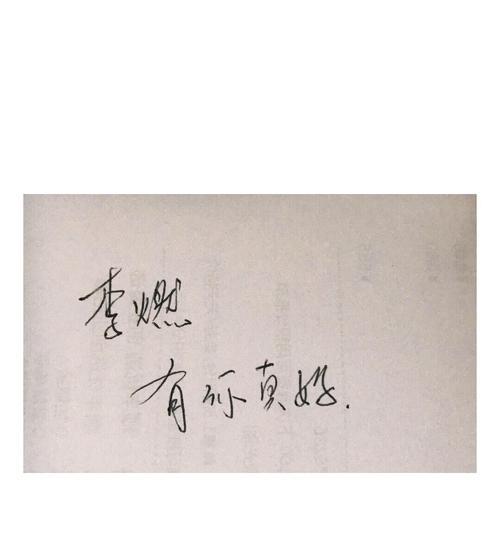 李燃
有你真好.